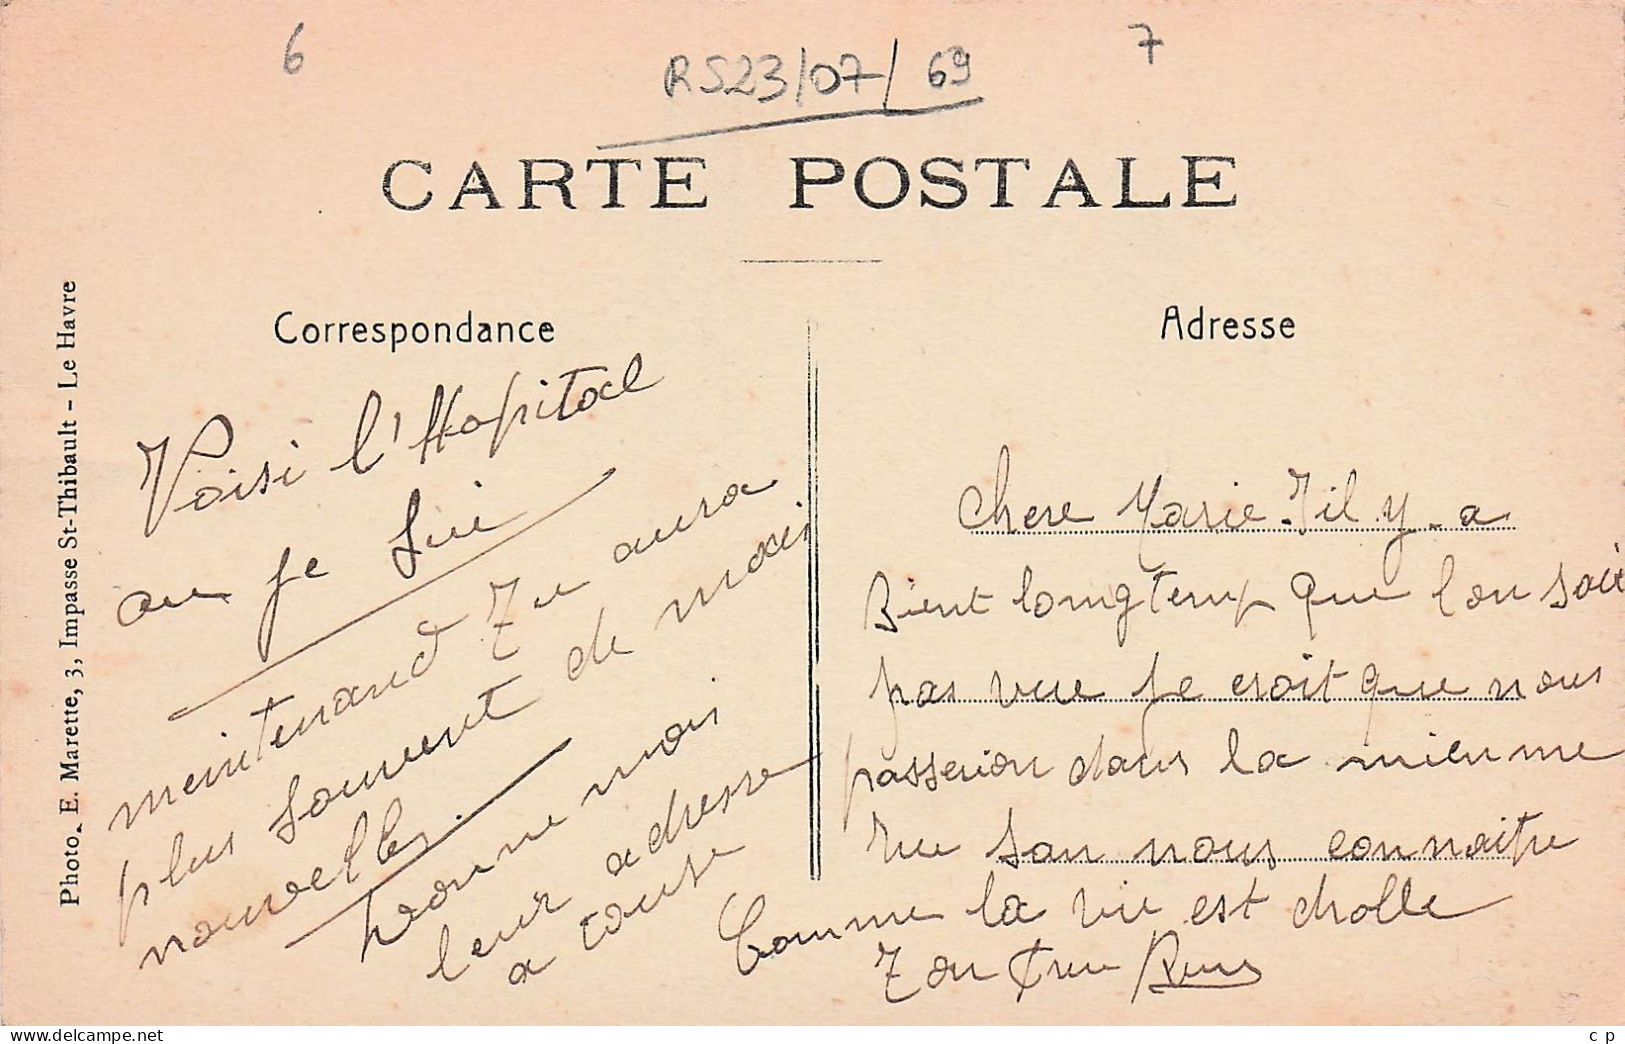 6
7
RS23/07/69
CARTE POSTALE
Correspondance
Adresse
Photo. E. Marette, 3, Impasse St-Thibault - Le Havre
Voisi l'Hopital
ou je sui
meintenand Tu aura
plus souvent de mais
nouvelles.
Donne moi
leur adresse
a touse
Chere Marie. Il y-a
Bient longtemp que l'on soie
pas vue je croit que nous
passerion dans la mienne
rue san nous connaitre
Comme la vie est drolle
Ton
www.delcampe.net
c p